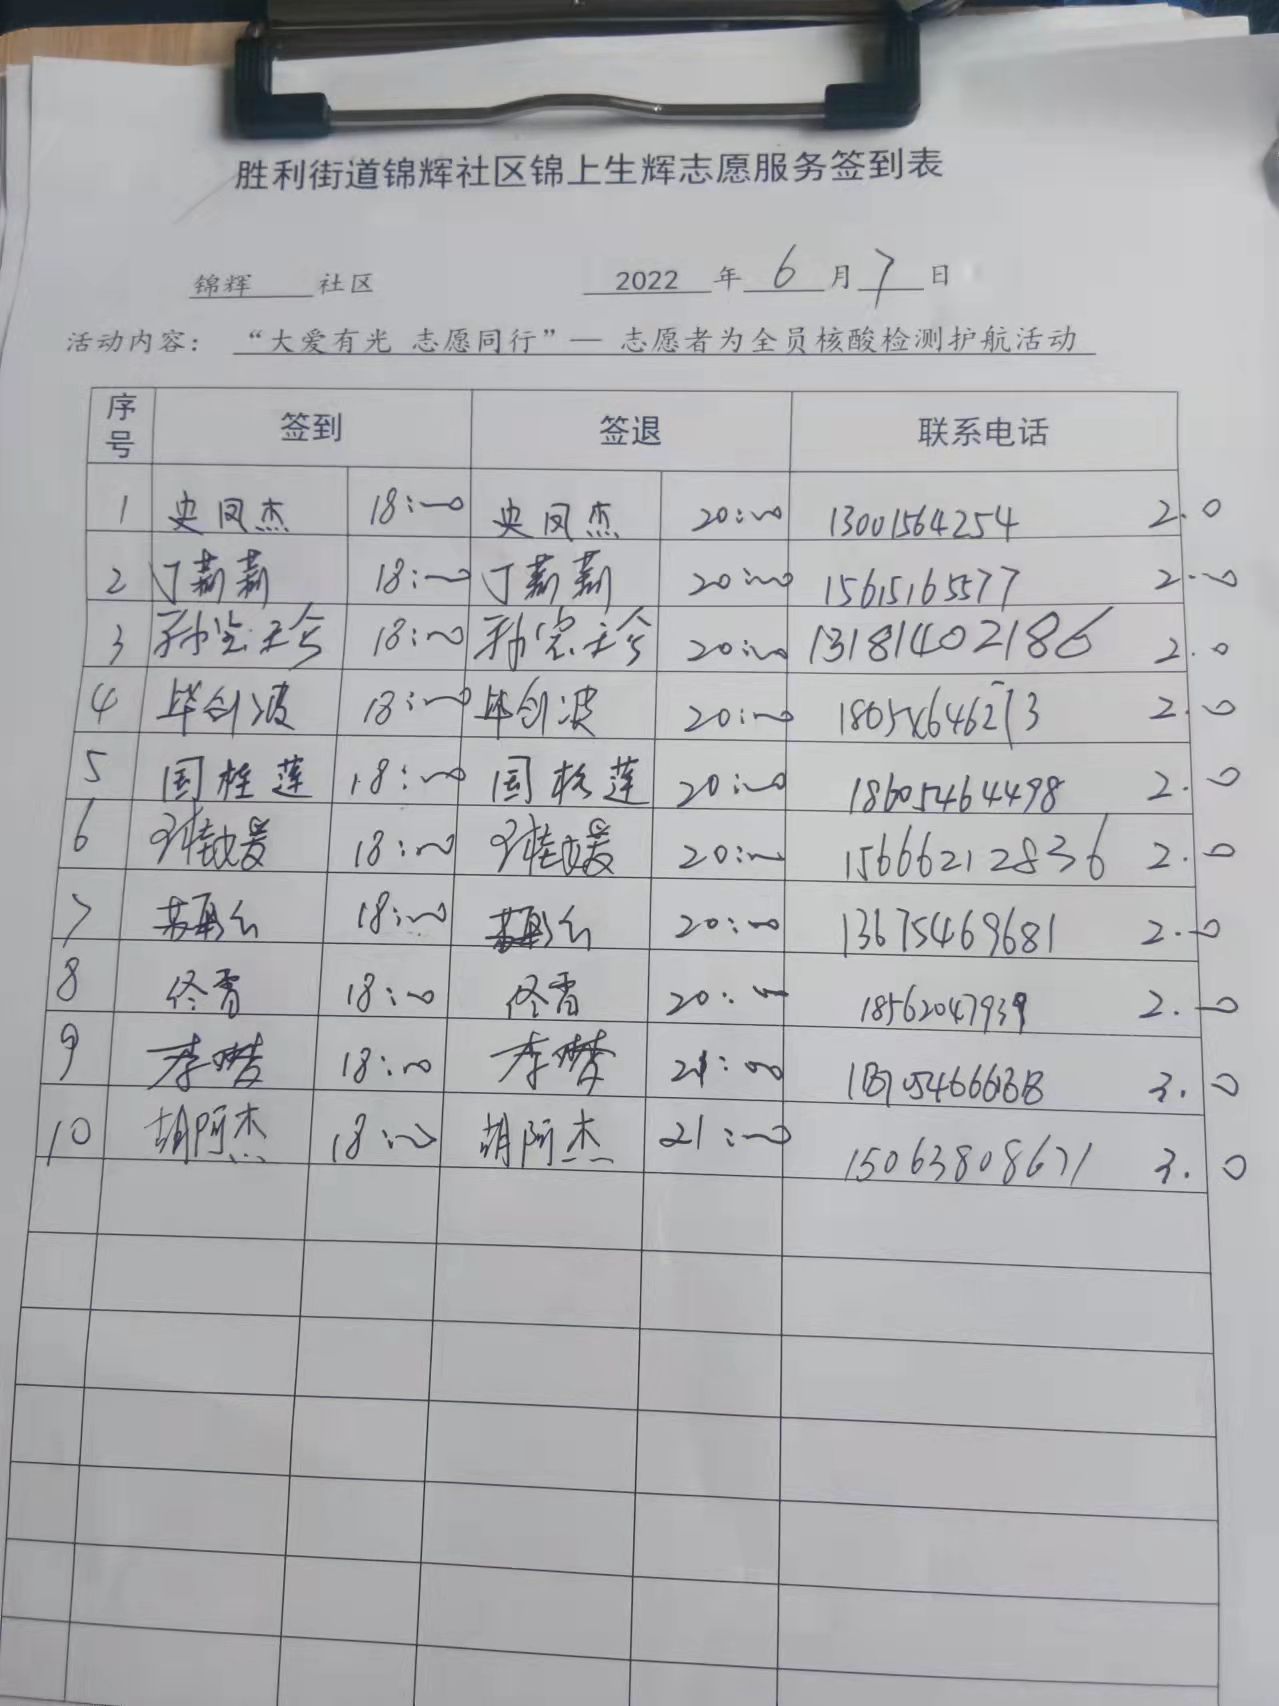 胜利街道锦辉社区锦上生辉志愿服务签到表
锦辉 社区 2022 年 6 月 7 日
活动内容： “大爱有光 志愿同行”— 志愿者为全员核酸检测护航活动
序号 签到 签退 联系电话
1 史凤杰 18:00 史凤杰 20:00 13001564254 2.0
2 丁莉莉 18:00 丁莉莉 20:00 15615165577 2.0
3 18:00 20:00 13181402186 2.0
4 毕剑波 18:00 毕剑波 20:00 2.0
5 国桂莲 18:00 国桂莲 20:00 18605464498 2.0
6 18:00 20:00 15666212836 2.0
7 18:00 20:00 13675469681 2.0
8 佟霄 18:00 佟霄 20:00 18562047939 2.0
9 李梦 18:00 李梦 21:00 3.0
10 胡阿杰 18:00 胡阿杰 21:00 15063808671 3.0